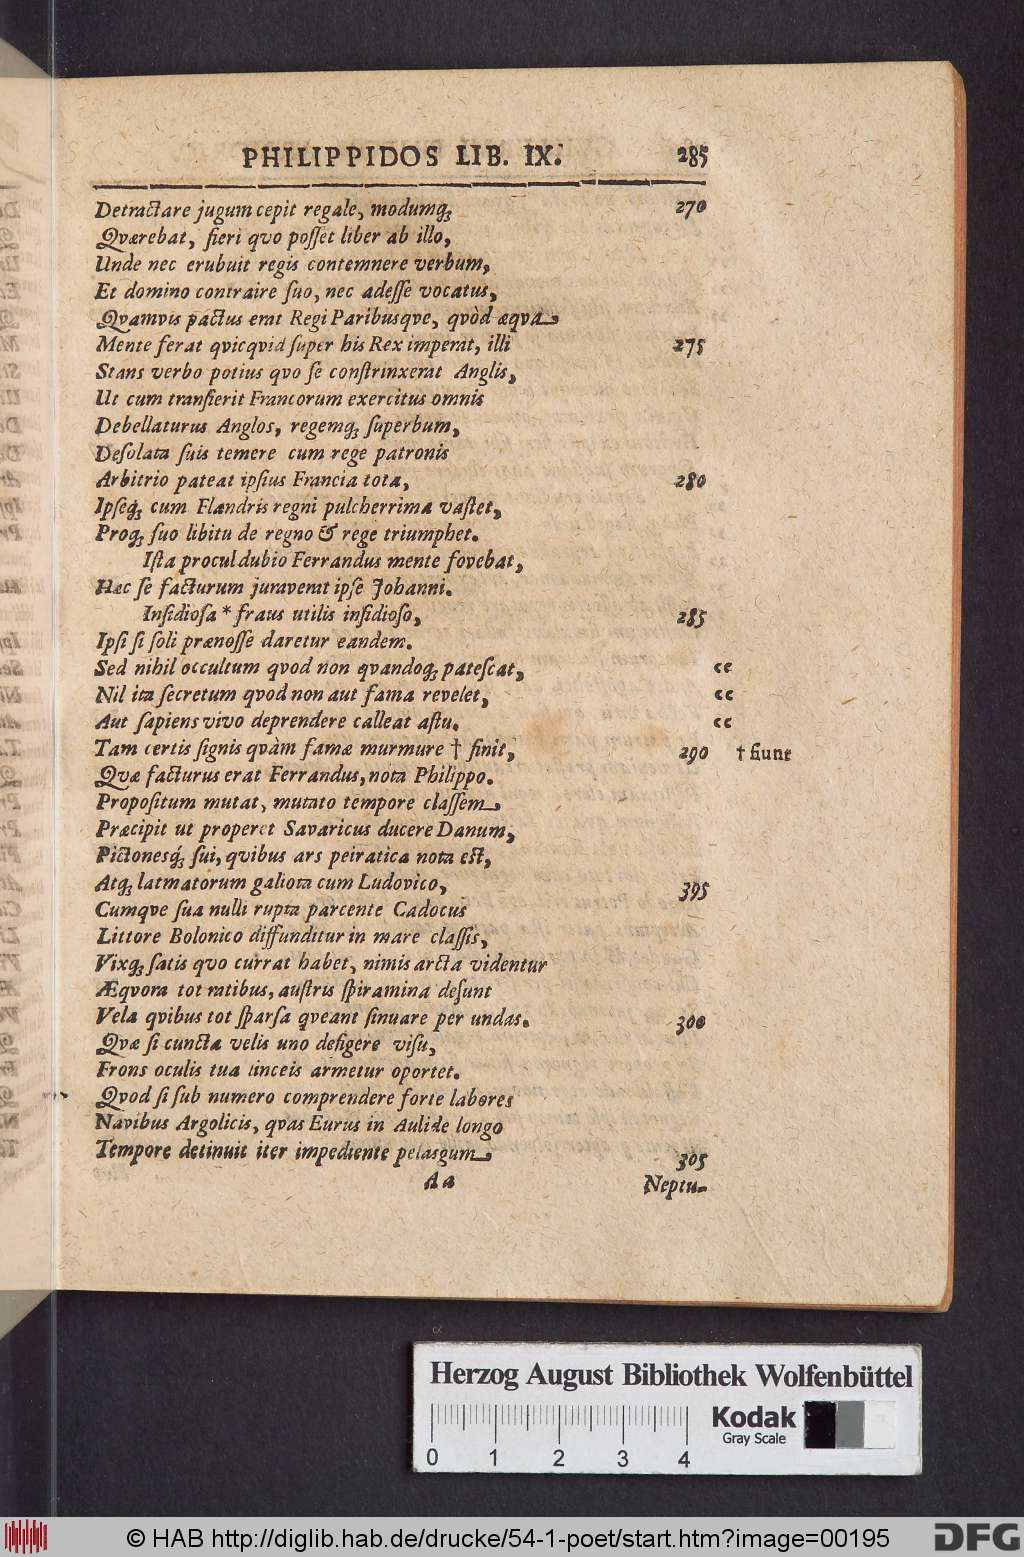 PHILIPPIDOS LIB. IX. 285
Detractare jugum cepit regale, modumq; 270
Qværebat, fieri qvo posset liber ab illo,
Unde nec erubuit regis contemnere verbum,
Et domino contraire suo, nec adesse vocatus,
Qvamvis pactus erat Regi Paribusqve, qvòd æqva
Mente ferat qvicqvid super his Rex imperat, illi 275
Stans verbo potius qvo se constrinxerat Anglis,
Ut cum transierit Francorum exercitus omnis
Debellaturus Anglos, regemq; superbum,
Desolata suis temere cum rege patronis
Arbitrio pateat ipsius Francia tota, 280
Ipseq; cum Flandris regni pulcherrima vastet,
Proq; suo libitu de regno & rege triumphet.
Ista procul dubio Ferrandus mente fovebat,
Hæc se facturum juraverat ipse Johanni.
Insidiosa * fraus utilis insidioso, 285
Ipsi si soli prænosse daretur eandem.
Sed nihil occultum qvod non qvandoq; patescat, “
Nil ita secretum qvod non aut fama revelet, “
Aut sapiens vivo deprendere calleat astu. “
Tam certis signis qvàm famæ murmure † finit, 290 † fiunt
Qvæ facturus erat Ferrandus, nota Philippo.
Propositum mutat, mutato tempore classem
Præcipit ut properet Savaricus ducere Danum,
Pictonesq́; sui, qvibus ars peiratica nota est,
Atq; latmatorum galiota cum Ludovico, 395
Cumqve sua nulli rupta parcente Cadocus
Littore Bolonico diffunditur in mare classis,
Vixq; satis qvo currat habet, nimis arcta videntur
Æqvora tot ratibus, austris spiramina desunt
Vela qvibus tot sparsa qveant sinuare per undas. 300
Qvæ si cuncta velis uno defigere visu,
Frons oculis tua linceis armetur oportet.
Qvod si sub numero comprendere forte labores
Navibus Argolicis, qvas Eurus in Aulide longo
Tempore detinuit iter impediente pelasgum 305
Aa Neptu-
Herzog August Bibliothek Wolfenbüttel
Kodak
Gray Scale
0 1 2 3 4
© HAB http://diglib.hab.de/drucke/54-1-poet/start.htm?image=00195
DFG